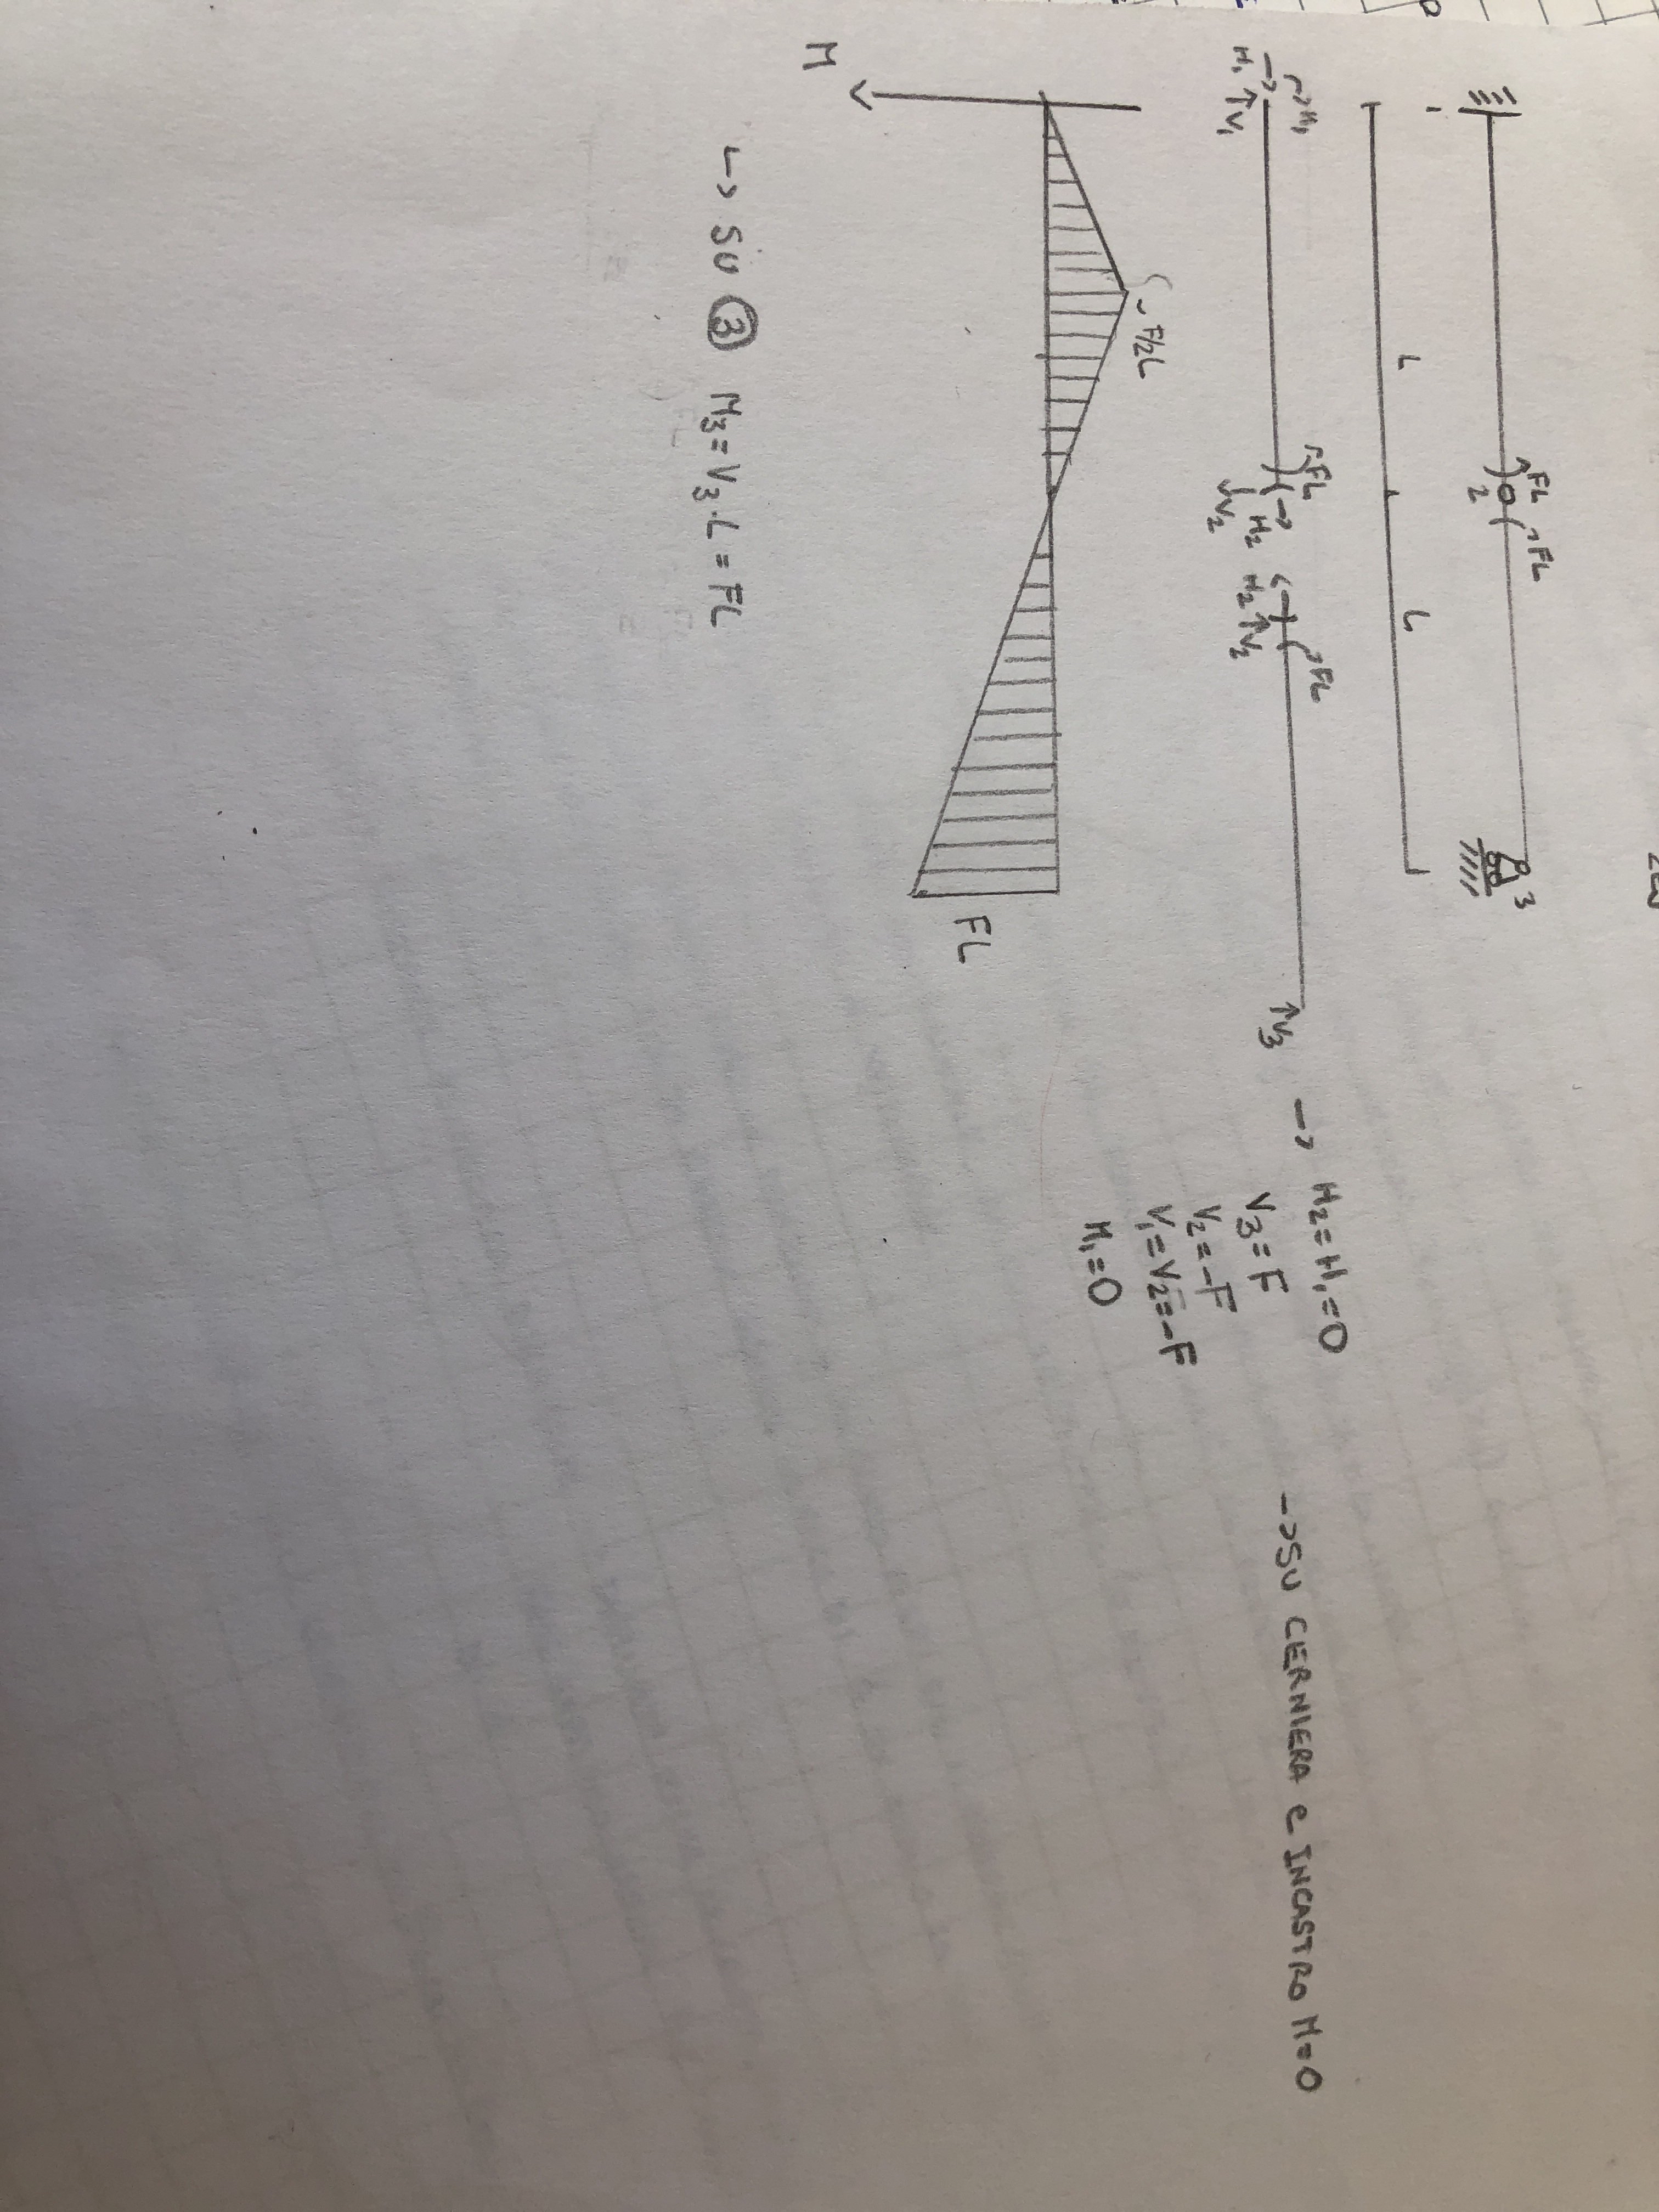 FL FL
2
3
1
L L
M1
H1 V1
FL
V2 H2
H2 V2
FL
V3
-> H2=H1=0
V3=F
V2=-F
V1=V2=-F
M1=0
->SU CERNIERA e INCASTRO M=0
F/2L
M
FL
↳ SU ③ M3=V3·L=FL